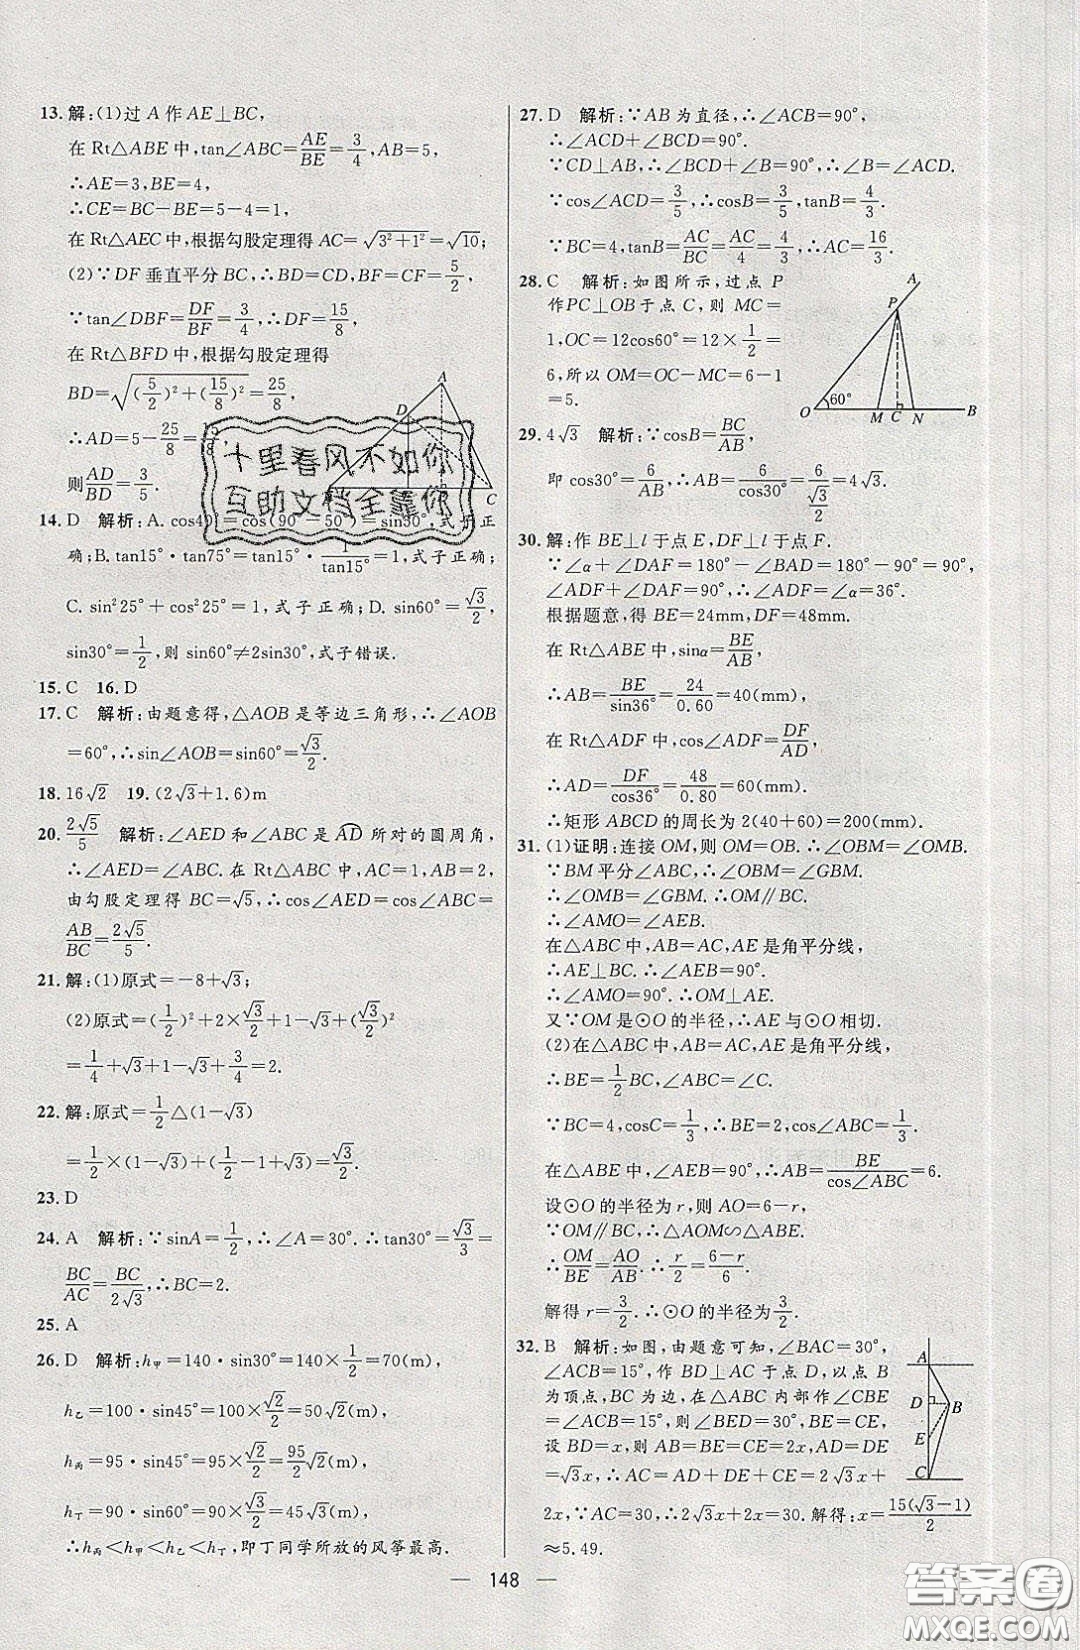 13.解:(1)过A作AE⊥BC,
在Rt△ABE中,tan∠ABC=AE/BE=3/4,AB=5,
∴AE=3,BE=4,
∴CE=BC-BE=5-4=1,
在Rt△AEC中,根据勾股定理得AC=√(3²+1²)=√10;
(2)∵DF垂直平分BC,∴BD=CD,BF=CF=5/2,
∵tan∠DBF=DF/BF=3/4,∴DF=15/8,
在Rt△BFD中,根据勾股定理得
BD=√((5/2)²+(15/8)²)=25/8,
∴AD=5-25/8=15/8,
则AD/BD=3/5.
A
D
C
十里春风不如你
互助文档全靠你
14.D 解析:A.cos40°=cos(90°-50°)=sin30°,式子正
确;B.tan15°·tan75°=tan15°·1/tan15°=1,式子正确;
C.sin²25°+cos²25°=1,式子正确;D.sin60°=√3/2,
sin30°=1/2,则sin60°≠2sin30°,式子错误.
15.C 16.D
17.C 解析:由题意得,△AOB是等边三角形,∴∠AOB
=60°,∴sin∠AOB=sin60°=√3/2.
18.16√2 19.(2√3+1.6)m
20.2√5/5 解析:∠AED和∠ABC是AD所对的圆周角,
∴∠AED=∠ABC.在Rt△ABC中,AC=1,AB=2,
由勾股定理得BC=√5,∴cos∠AED=cos∠ABC=
AB/BC=2√5/5.
21.解:(1)原式=-8+√3;
(2)原式=(1/2)²+2×√3/2+1-√3+(√3/2)²
=1/4+√3+1-√3+3/4=2.
22.解:原式=1/2△(1-√3)
=1/2×(1-√3)+(1/2-1+√3)=√3/2.
23.D
24.A 解析:∵sinA=1/2,∴∠A=30°.∴tan30°=√3/3=
BC/AC=BC/2√3,∴BC=2.
25.A
26.D 解析:h甲=140·sin30°=140×1/2=70(m),
h乙=100·sin45°=100×√2/2=50√2(m),
h丙=95·sin45°=95×√2/2=95/2√2(m),
h丁=90·sin60°=90×√3/2=45√3(m),
∴h丙<h甲<h乙<h丁,即丁同学所放的风筝最高.
27.D 解析:∵AB为直径,∴∠ACB=90°,
∴∠ACD+∠BCD=90°.
∵CD⊥AB,∴∠BCD+∠B=90°,∴∠B=∠ACD.
∵cos∠ACD=3/5,∴cosB=3/5,tanB=4/3.
∵BC=4,tanB=AC/BC=AC/4=4/3,∴AC=16/3.
28.C 解析:如图所示,过点P
作PC⊥OB于点C,则MC=
1,OC=12cos60°=12×1/2=
6,所以OM=OC-MC=6-1
=5.
A
P
O
60°
M
C
N
B
29.4√3 解析:∵cosB=BC/AB,
即cos30°=6/AB,∴AB=6/cos30°=6/(√3/2)=4√3.
30.解:作BE⊥l于点E,DF⊥l于点F.
∵∠α+∠DAF=180°-∠BAD=180°-90°=90°,
∠ADF+∠DAF=90°,∴∠ADF=∠α=36°.
根据题意,得BE=24mm,DF=48mm.
在Rt△ABE中,sinα=BE/AB,
∴AB=BE/sin36°=24/0.60=40(mm),
在Rt△ADF中,cos∠ADF=DF/AD,
∴AD=DF/cos36°=48/0.80=60(mm).
∴矩形ABCD的周长为2(40+60)=200(mm).
31.(1)证明:连接OM,则OM=OB.∴∠OBM=∠OMB.
∵BM平分∠ABC,∴∠OBM=∠GBM.
∴∠OMB=∠GBM.∴OM∥BC.
∴∠AMO=∠AEB.
在△ABC中,AB=AC,AE是角平分线,
∴AE⊥BC.∴∠AEB=90°.
∴∠AMO=90°.∴OM⊥AE.
又∵OM是⊙O的半径,∴AE与⊙O相切.
(2)在△ABC中,AB=AC,AE是角平分线,
∴BE=1/2BC,∠ABC=∠C.
∵BC=4,cosC=1/3,∴BE=2,cos∠ABC=1/3.
在△ABE中,∠AEB=90°,∴AB=BE/cos∠ABC=6.
设⊙O的半径为r,则AO=6-r.
∵OM∥BC,∴△AOM∽△ABE.
∴OM/BE=AO/AB.∴r/2=(6-r)/6.
解得r=3/2.∴⊙O的半径为3/2.
32.B 解析:如图,由题意可知,∠BAC=30°,
∠ACB=15°,作BD⊥AC于点D,以点B
为顶点,BC为边,在△ABC内部作∠CBE
=∠ACB=15°,则∠BED=30°,BE=CE,
设BD=x,则AB=BE=CE=2x,AD=DE
=√3x,∴AC=AD+DE+CE=2√3x+
2x,∵AC=30,∴2√3x+2x=30.解得:x=15(√3-1)/2
≈5.49.
A
D
B
E
C
— 148 —
答案圈
MXQE.COM